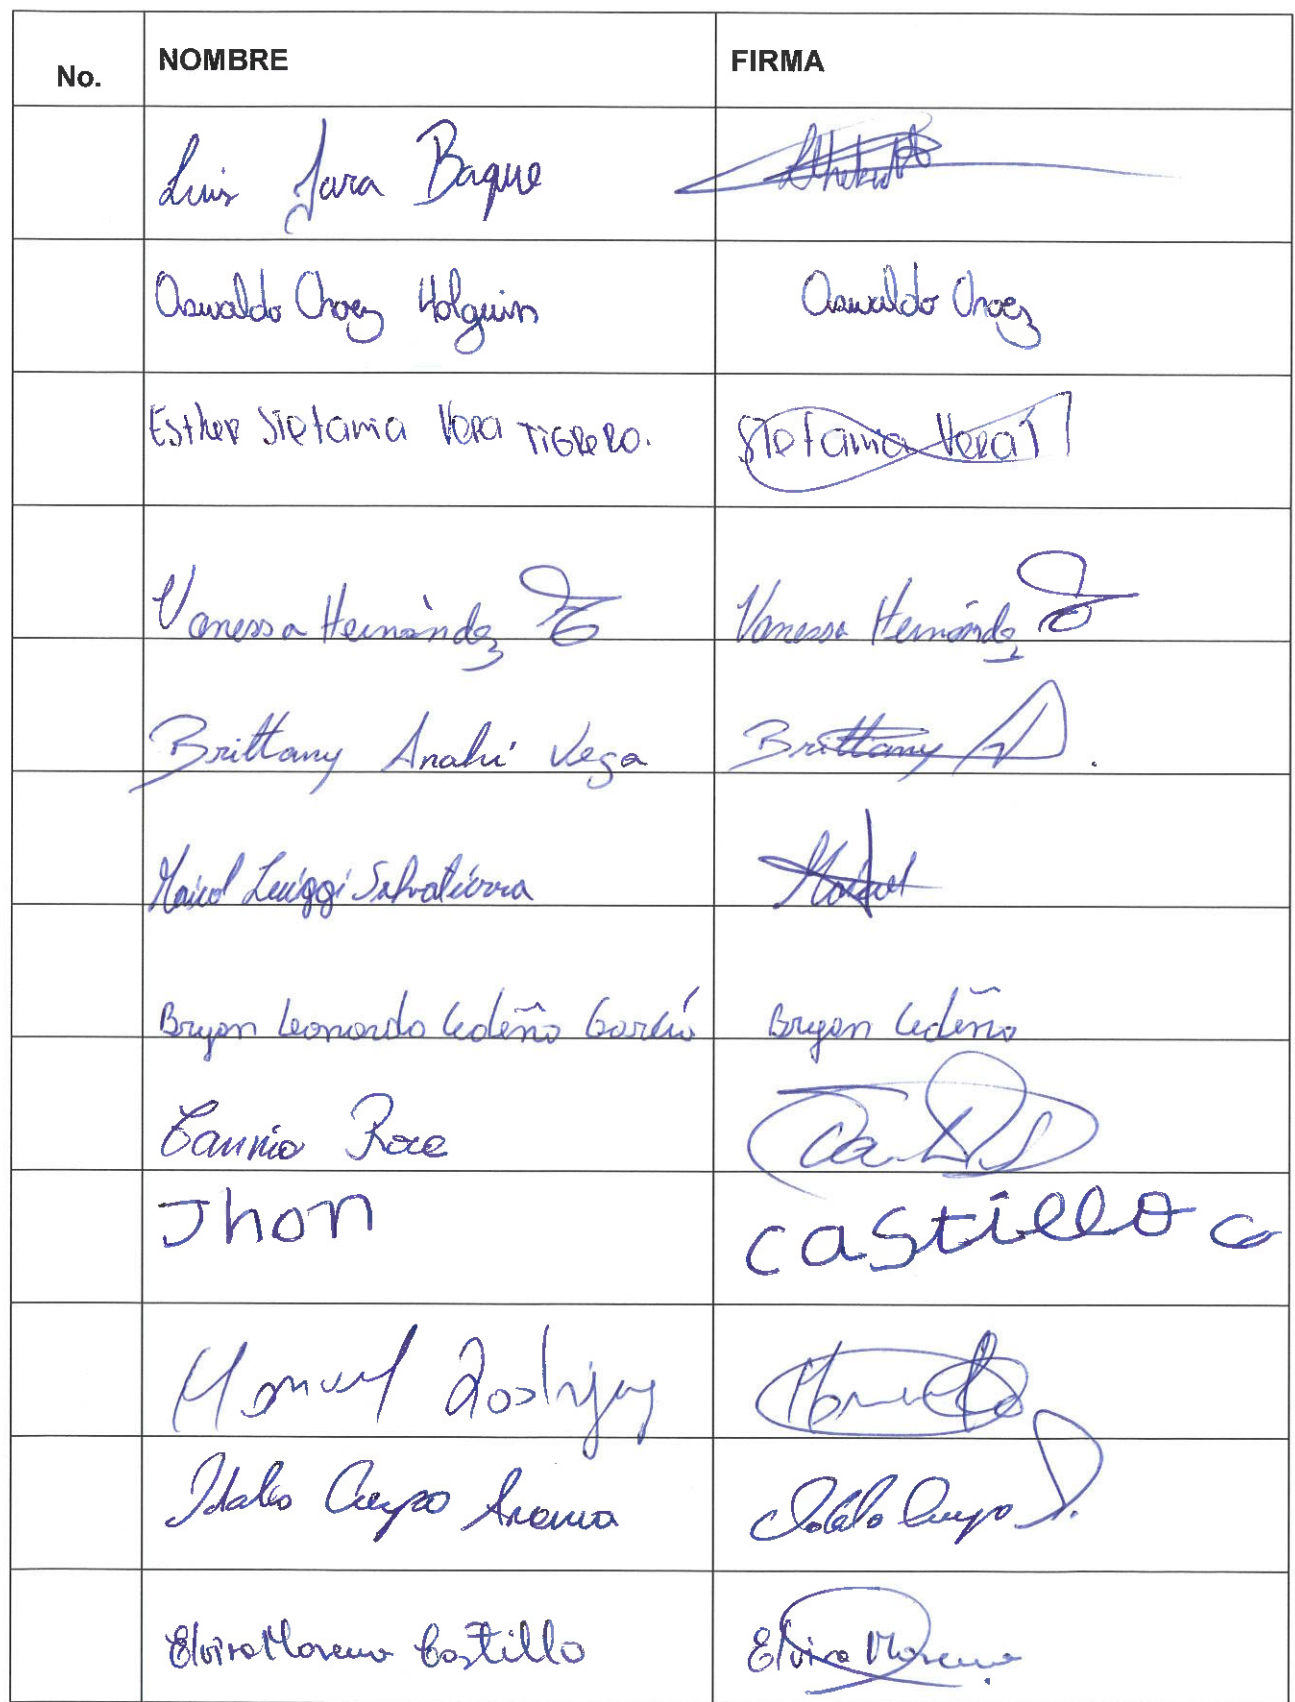 No. NOMBRE FIRMA
Luis Jara Baque
Oswaldo Choez Holguin Oswaldo Choez
Esther Stefania Vera TIGRERO. Stefania Vera T
Vanessa Hernández Vanessa Hernández
Brittany Anahí Vega Brittany
Maicol Luiggi Salvatierra Maicol
Bryan Leonardo Cedeño García Bryan Cedeño
Roce
Jhon castillo c
Manuel Rodriguez Manuel
Idalio Crespo Arana Idalio Crespo
Elvira Moreno Castillo Elvira Moreno